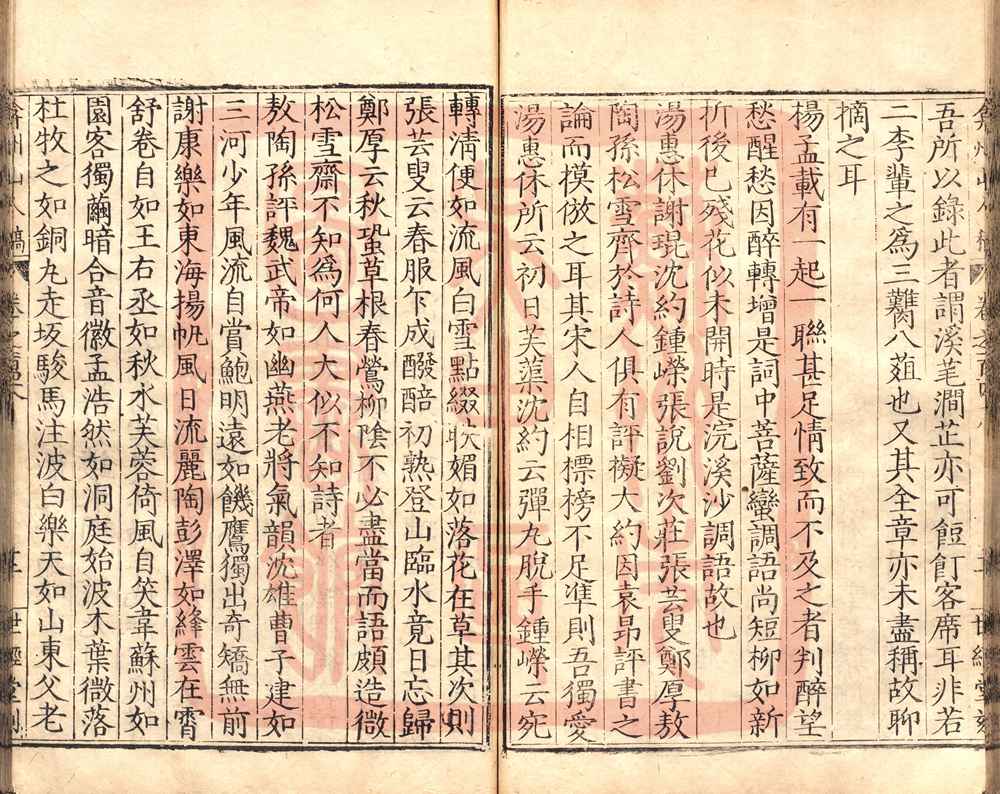 吾所以錄此者謂溪毛澗芷亦可餖飣客席耳非若
二李輩之爲三臡八葅也又其全章亦未盡稱故聊
摘之耳
楊孟載有一起一聯甚足情致而不及之者判醉望
愁醒愁因醉轉增是詞中菩薩蠻調語尚短柳如新
折後已殘花似未開時是浣溪沙調語故也
湯惠休謝琨沈約鍾嶸張說劉次莊張芸叟鄭厚敖
陶孫松雪齊於詩人俱有評擬大約因袁昂評書之
論而模倣之耳其宋人自相標榜不足準則吾獨愛
湯惠休所云初日芙蕖沈約云彈丸脫手鍾嶸云宛
轉清便如流風白雪點綴暎媚如落花在草其次則
張芸叟云春服乍成醱醅初熟登山臨水竟日忘歸
鄭厚云秋蛩草根春鶯柳陰不必盡當而語頗造微
松雪齋不知爲何人大似不知詩者
敖陶孫評魏武帝如幽燕老將氣韻沈雄曹子建如
三河少年風流自賞鮑明遠如饑鷹獨出奇矯無前
謝康樂如東海揚帆風日流麗陶彭澤如絳雲在霄
舒卷自如王右丞如秋水芙蓉倚風自笑韋蘇州如
園客獨繭暗合音徽孟浩然如洞庭始波木葉微落
杜牧之如銅丸走坂駿馬注波白樂天如山東父老
弇州山人稿 卷之 世經堂刻